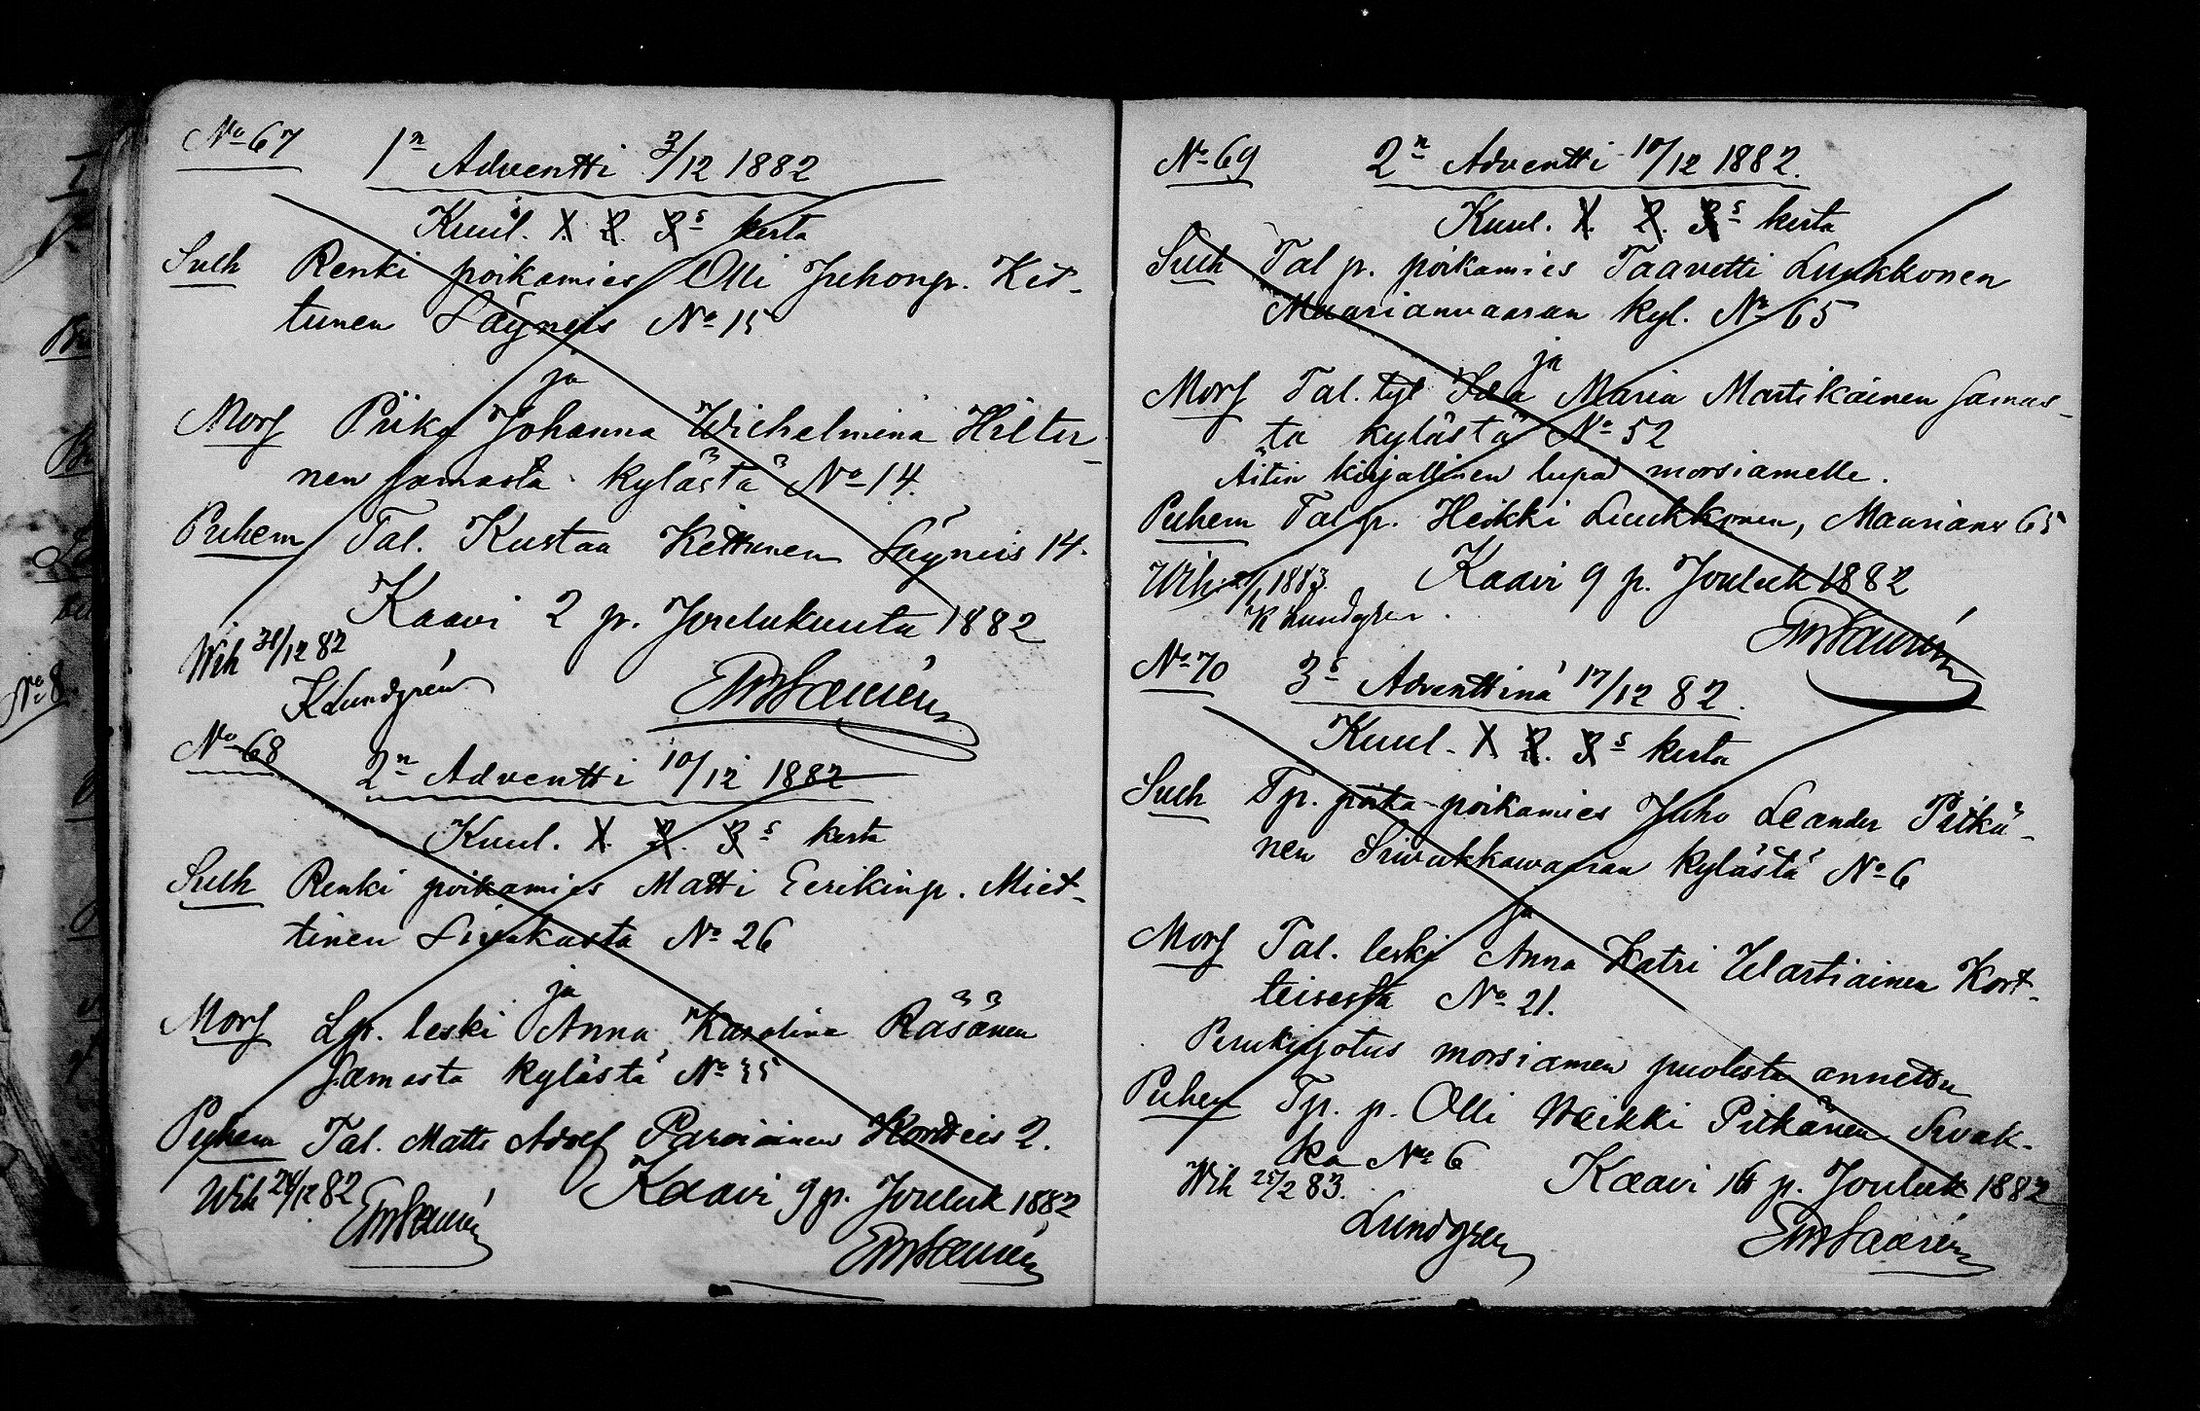 No 67
1n Adventti 3/12 1882
Kuul. 1. 2. 3s kerta
Sulh Renki poikamies Olli Juhonp. Ket-
tunen Säyneis No 15
ja
Mors Piika Johanna Wilhelmina Hiltu-
nen samasta kylästä No 14.
Puhem Tal. Kustaa Kettunen Säyneis 14.
Kaavi 2 p. Joulukuuta 1882
Wih 31/12 82
K Lundgrén
No 68
2n Adventti 10/12 1882
Kuul. 1. 2. 3s kerta
Sulh Renki poikamies Matti Eerikinp. Miet-
tinen Sivakasta No 26
ja
Mors Lp. leski Anna Karolina Räsänen
samasta kylästä No 35
Puhem Tal. Matti Adolf Parviainen Kortteis 2.
Wih 26/12 82
Kaavi 9 p. Jouluk 1882
No 69
2n Adventti 10/12 1882.
Kuul. 1. 2. 3s kerta
Sulh Tal p. poikamies Taavetti Luukkonen
Maarianvaaran kyl. No 65
ja
Mors Tal. tyt Ida Maria Martikainen samas-
ta kylästä No 52
Äitin kirjallinen lupa morsiamelle.
Puhem Tal p. Heikki Luukkonen, Maarianv 65
Wih 1883.
Kaavi 9 p. Jouluk 1882
K Lundgren.
No 70
3s Adventtina 17/12 82.
Kuul. 1 2. 3s kerta
Sulh Tp. poika poikamies Juho Leander Pitkä-
nen Sivakkavaaran kylästä No 6
ja
Mors Tal. leski Anna Katri Wartiainen Kort-
teisesta No 21.
Perukirjotus morsiamen puolesta annettu
Puhem Tp. p. Olli Heikki Pitkänen Sivak-
ka No 6
Wih 25/2 83.
Kaavi 16 p. Jouluk 1882
Lundgren
No 8